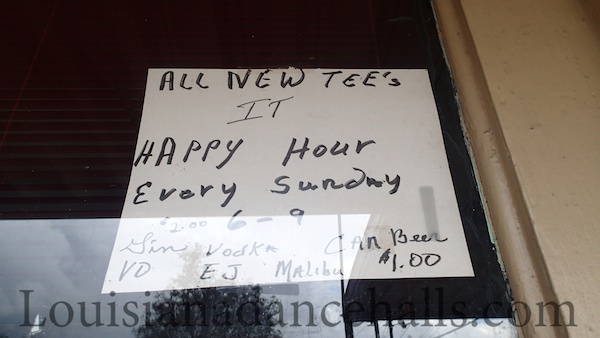 ALL NEW TEE's
IT
HAPPY HOUR
Every Sunday
$2.00 6-9
Gin Vodka CAN Beer
VO EJ MALibu $1.00
Louisianadancehalls.com